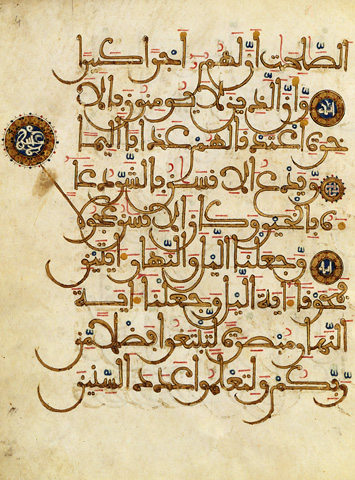 الصلحت أن لهم أجرا كبيرا
وأن الذين لا يؤمنون بالا
خرة أعتدنا لهم عذابا أليما
ويدع الانسن بالشر دعا
ءه بالخير وكان الانسن عجولا
وجعلنا اليل والنهار ءايتين
فمحونا ءاية اليل وجعلنا ءاية
النهار مبصرة لتبتغوا فضلا من
ربكم ولتعلموا عدد السنين